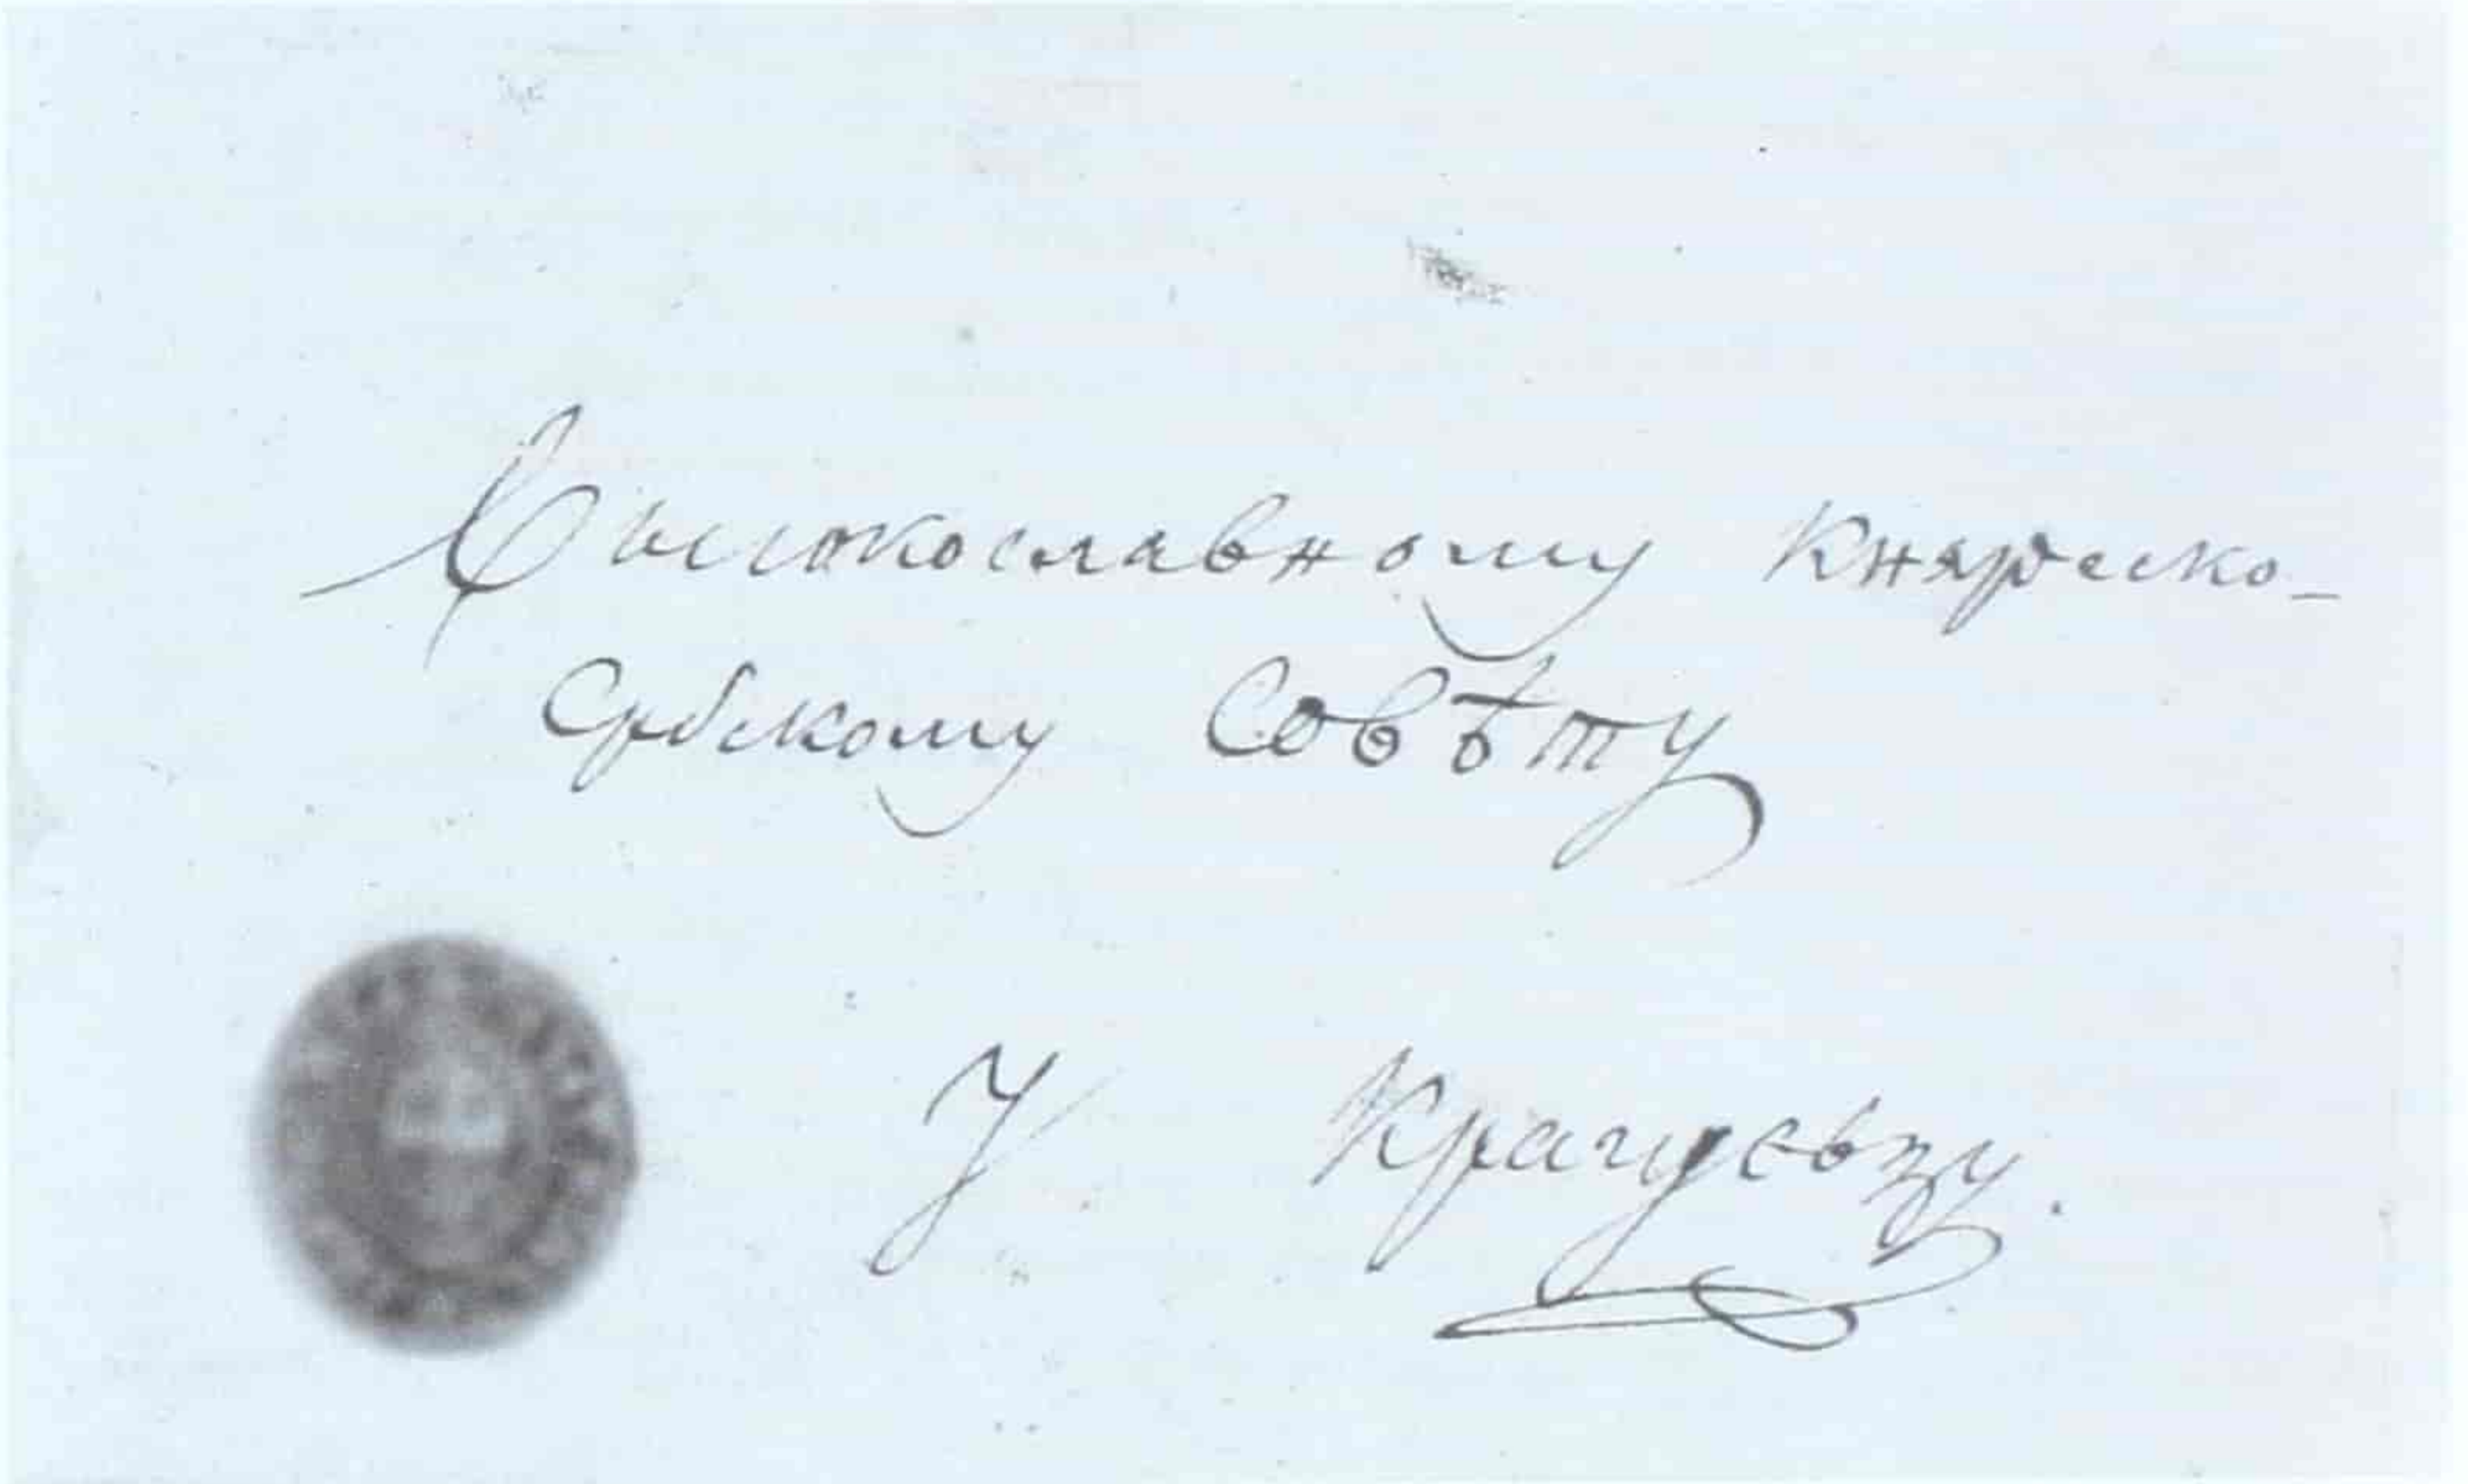 Высокославному Княжеско-
Србскому Совѣту
У Крагуевцу.